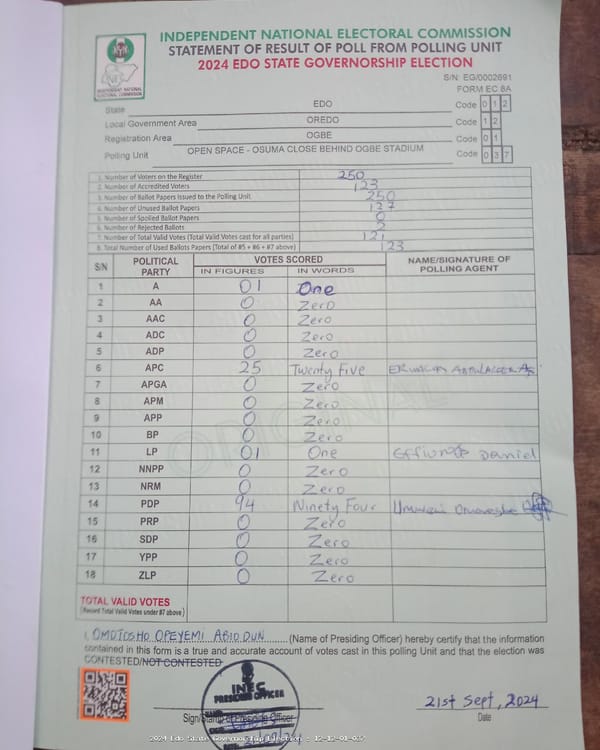 INDEPENDENT NATIONAL ELECTORAL COMMISSION
STATEMENT OF RESULT OF POLL FROM POLLING UNIT
2024 EDO STATE GOVERNORSHIP ELECTION
INEC
INDEPENDENT NATIONAL ELECTORAL COMMISSION
S/N: EG/0002691
FORM EC 8A
State EDO Code 0 1 2
Local Government Area OREDO Code 1 2
Registration Area OGBE Code 0 1
Polling Unit OPEN SPACE - OSUMA CLOSE BEHIND OGBE STADIUM Code 0 3 7
1. Number of Voters on the Register 250
2. Number of Accredited Voters 123
3. Number of Ballot Papers Issued to the Polling Unit 250
4. Number of Unused Ballot Papers 127
5. Number of Spoiled Ballot Papers 0
6. Number of Rejected Ballots 2
7. Number of Total Valid Votes (Total Valid Votes cast for all parties) 121
8. Total Number of Used Ballots Papers (Total of #5 + #6 + #7 above) 123
S/N POLITICAL PARTY VOTES SCORED NAME/SIGNATURE OF POLLING AGENT
IN FIGURES IN WORDS
1 A 01 One
2 AA 0 Zero
3 AAC 0 Zero
4 ADC 0 Zero
5 ADP 0 Zero
6 APC 25 Twenty Five
7 APGA 0 Zero
8 APM 0 Zero
9 APP 0 Zero
10 BP 0 Zero
11 LP 01 One Daniel
12 NNPP 0 Zero
13 NRM 0 Zero
14 PDP 94 Ninety Four
15 PRP 0 Zero
16 SDP 0 Zero
17 YPP 0 Zero
18 ZLP 0 Zero
ORIGINAL
TOTAL VALID VOTES
(Record Total Valid Votes under #7 above)
I, OMOTOSHO OPEYEMI ABIODUN (Name of Presiding Officer) hereby certify that the information
contained in this form is a true and accurate account of votes cast in this polling Unit and that the election was
CONTESTED/NOT CONTESTED
INEC
PRESIDING OFFICER
21st Sept, 2024
Sign/Stamp of Presiding Officer Date
2024 Edo State Governorship Election : 12-12-01-037